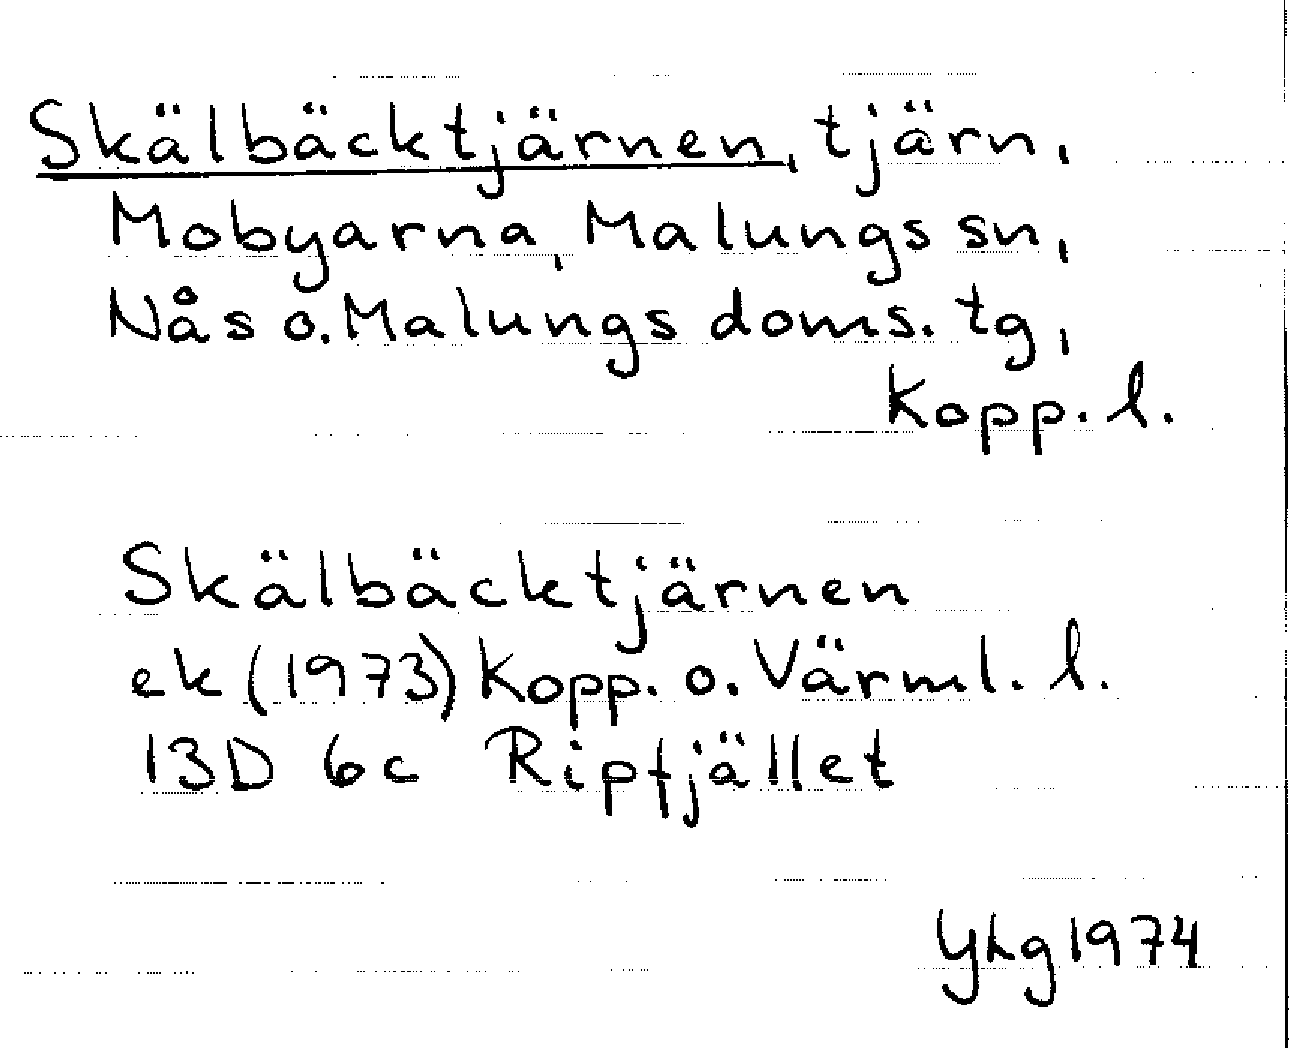 Skälbäcktjärnen, tjärn,
Mobyarna, Malungs sn,
Nås o. Malungs doms. tg,
Kopp. l.
Skälbäcktjärnen
ek (1973) Kopp. o. Värml. l.
13D 6c Ripfjället
YLg 1974